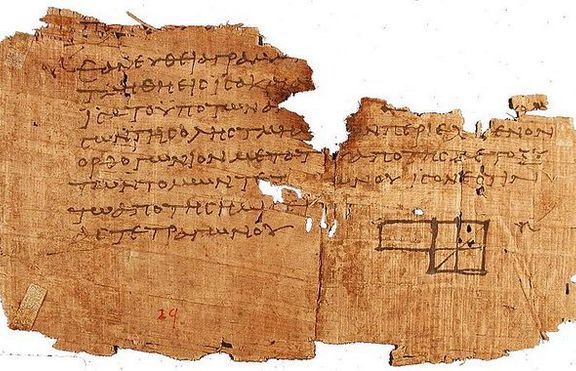 ΕΑΝΕΥΘΕΙΑΓΡΑΜΜ
ΤΜΗΘΗΕΙΣΙΣΑΚΑΙ
ΙΣΑΤΟΥΠΟΤΩΝΑ
ΣΩΝΤΗΣΟΛΗΣΤΜΗ ΩΝΠΕΡΙΕΧΟΜΕΝΟΝ
ΟΡΘΟΓΩΝΙΟΝΜΕΤΟΥ ΑΠΟΤΗΣΜΕΤΟΞΥ
ΤΩΝΤΟΜΩΝΤΕΤ ΩΝΟΥΙΣΟΝΕΣΤΙΝ
ΤΩΑΠΟΤΗΣΗΜΙ
ΑΣΤΕΤΡΑΓΩΝΟΥ
29